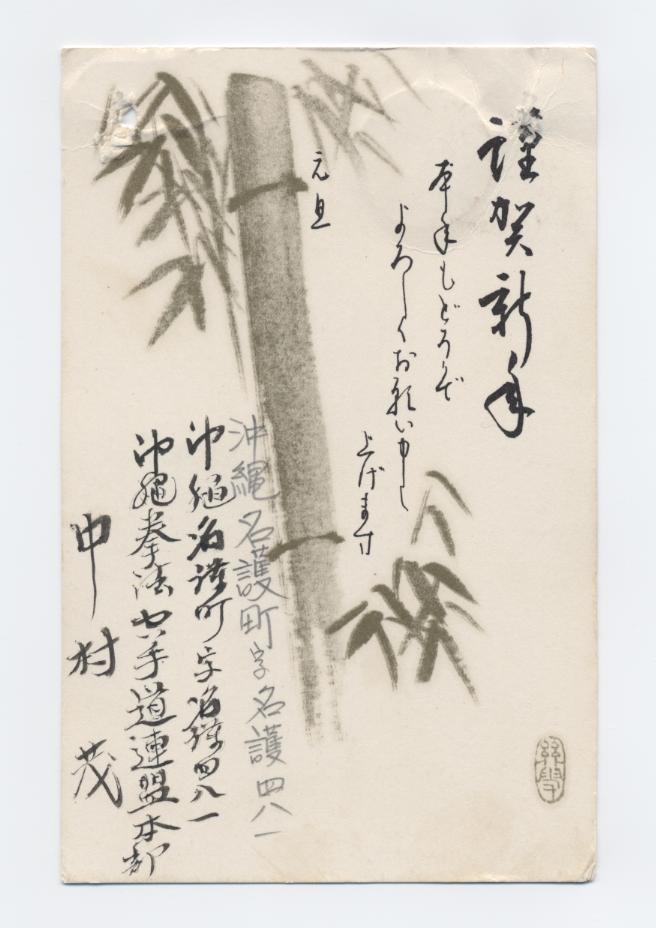 謹賀新年
本年もどうぞ
よろしくお願い申し
上げます
元旦
沖縄名護町字名護四八一
沖縄名護町字名護四八一
沖縄拳法空手道連盟本部
中村茂